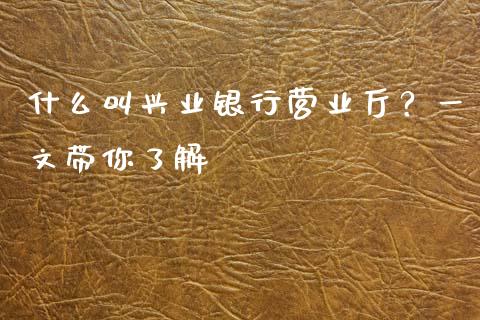 什么叫兴业银行营业厅？一
文带你了解